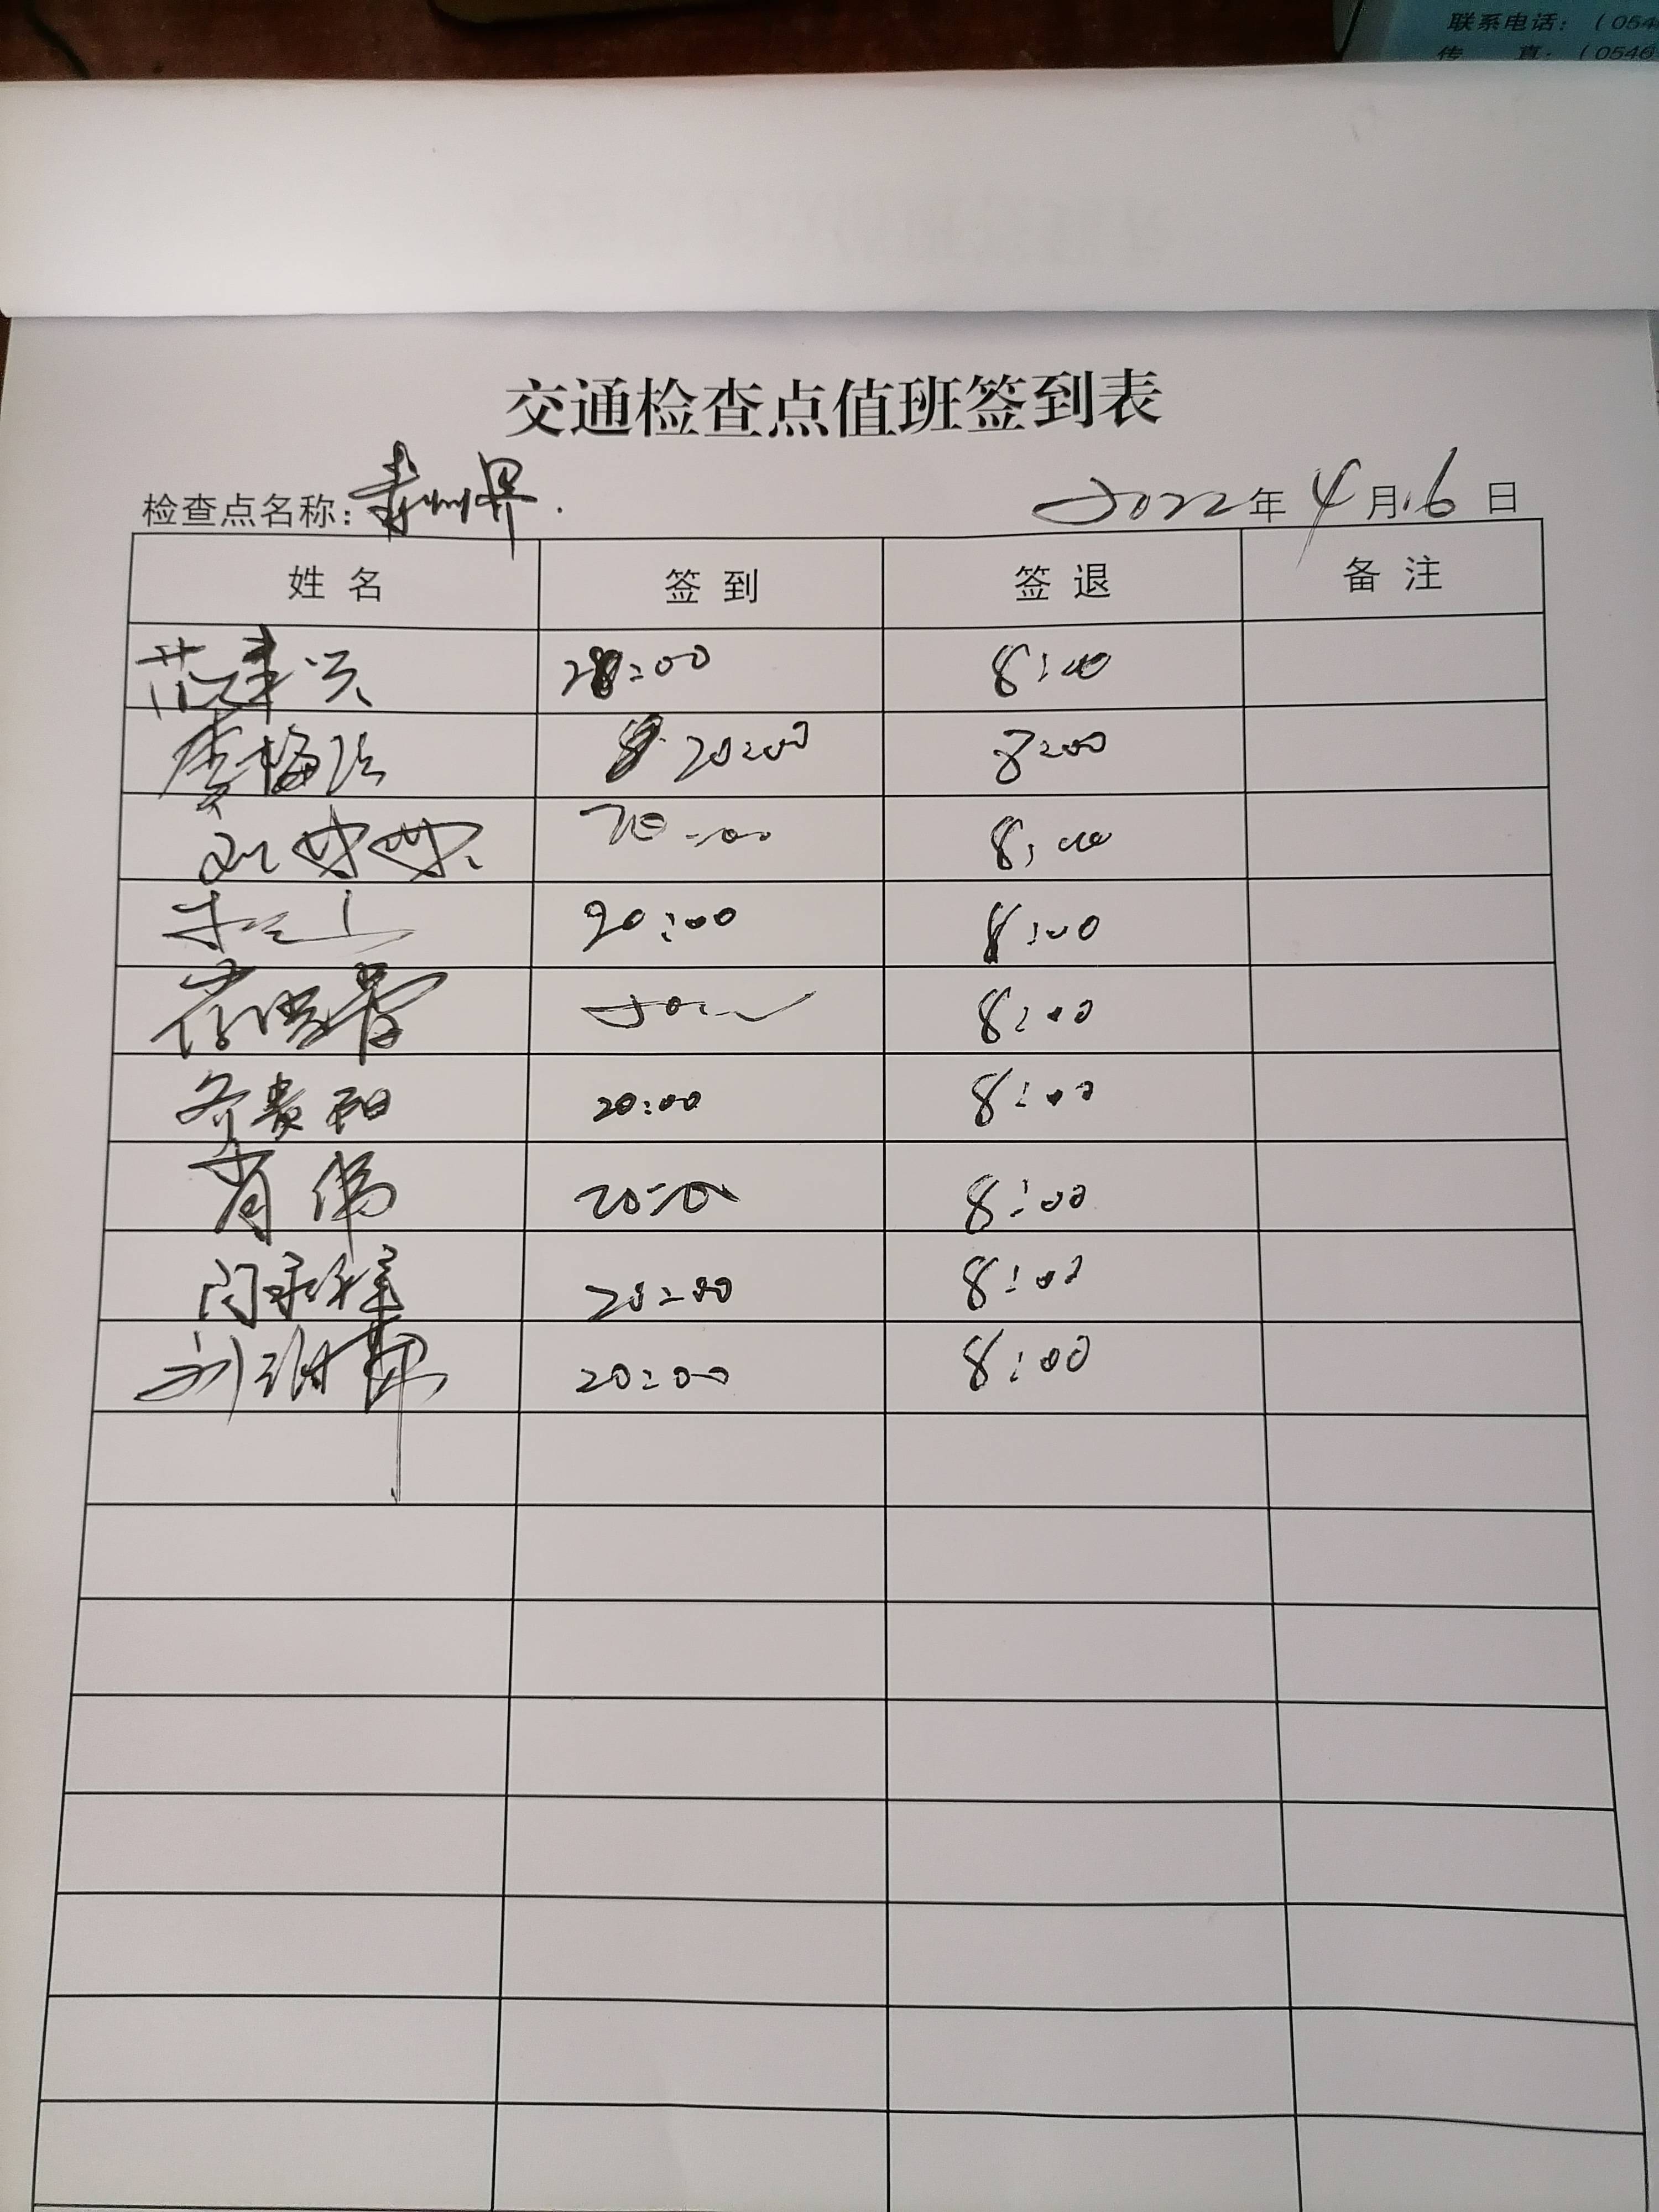 联系电话：（054
传 真：（0546
交通检查点值班签到表
检查点名称：寿州界. 2022年4月16日
姓名 签到 签退 备注
范建兴 20:00 8:00
李梅 20:00 8:00
20:00 8:00
20:00 8:00
8:00
齐贵阳 20:00 8:00
肖伟 20:00 8:00
闫 20:00 8:00
刘 20:00 8:00